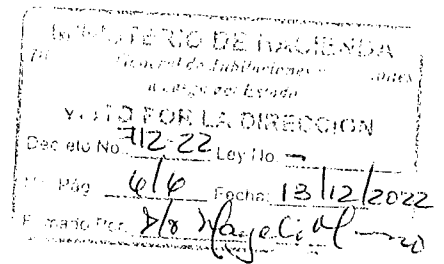 MINISTERIO DE HACIENDA
General de Jubilaciones
a cargo del Estado
VISTO POR LA DIRECCION
Decreto No. 712-22 Ley No. -
Pág. 6/6 Fecha: 13/12/2022
Firmado Por: